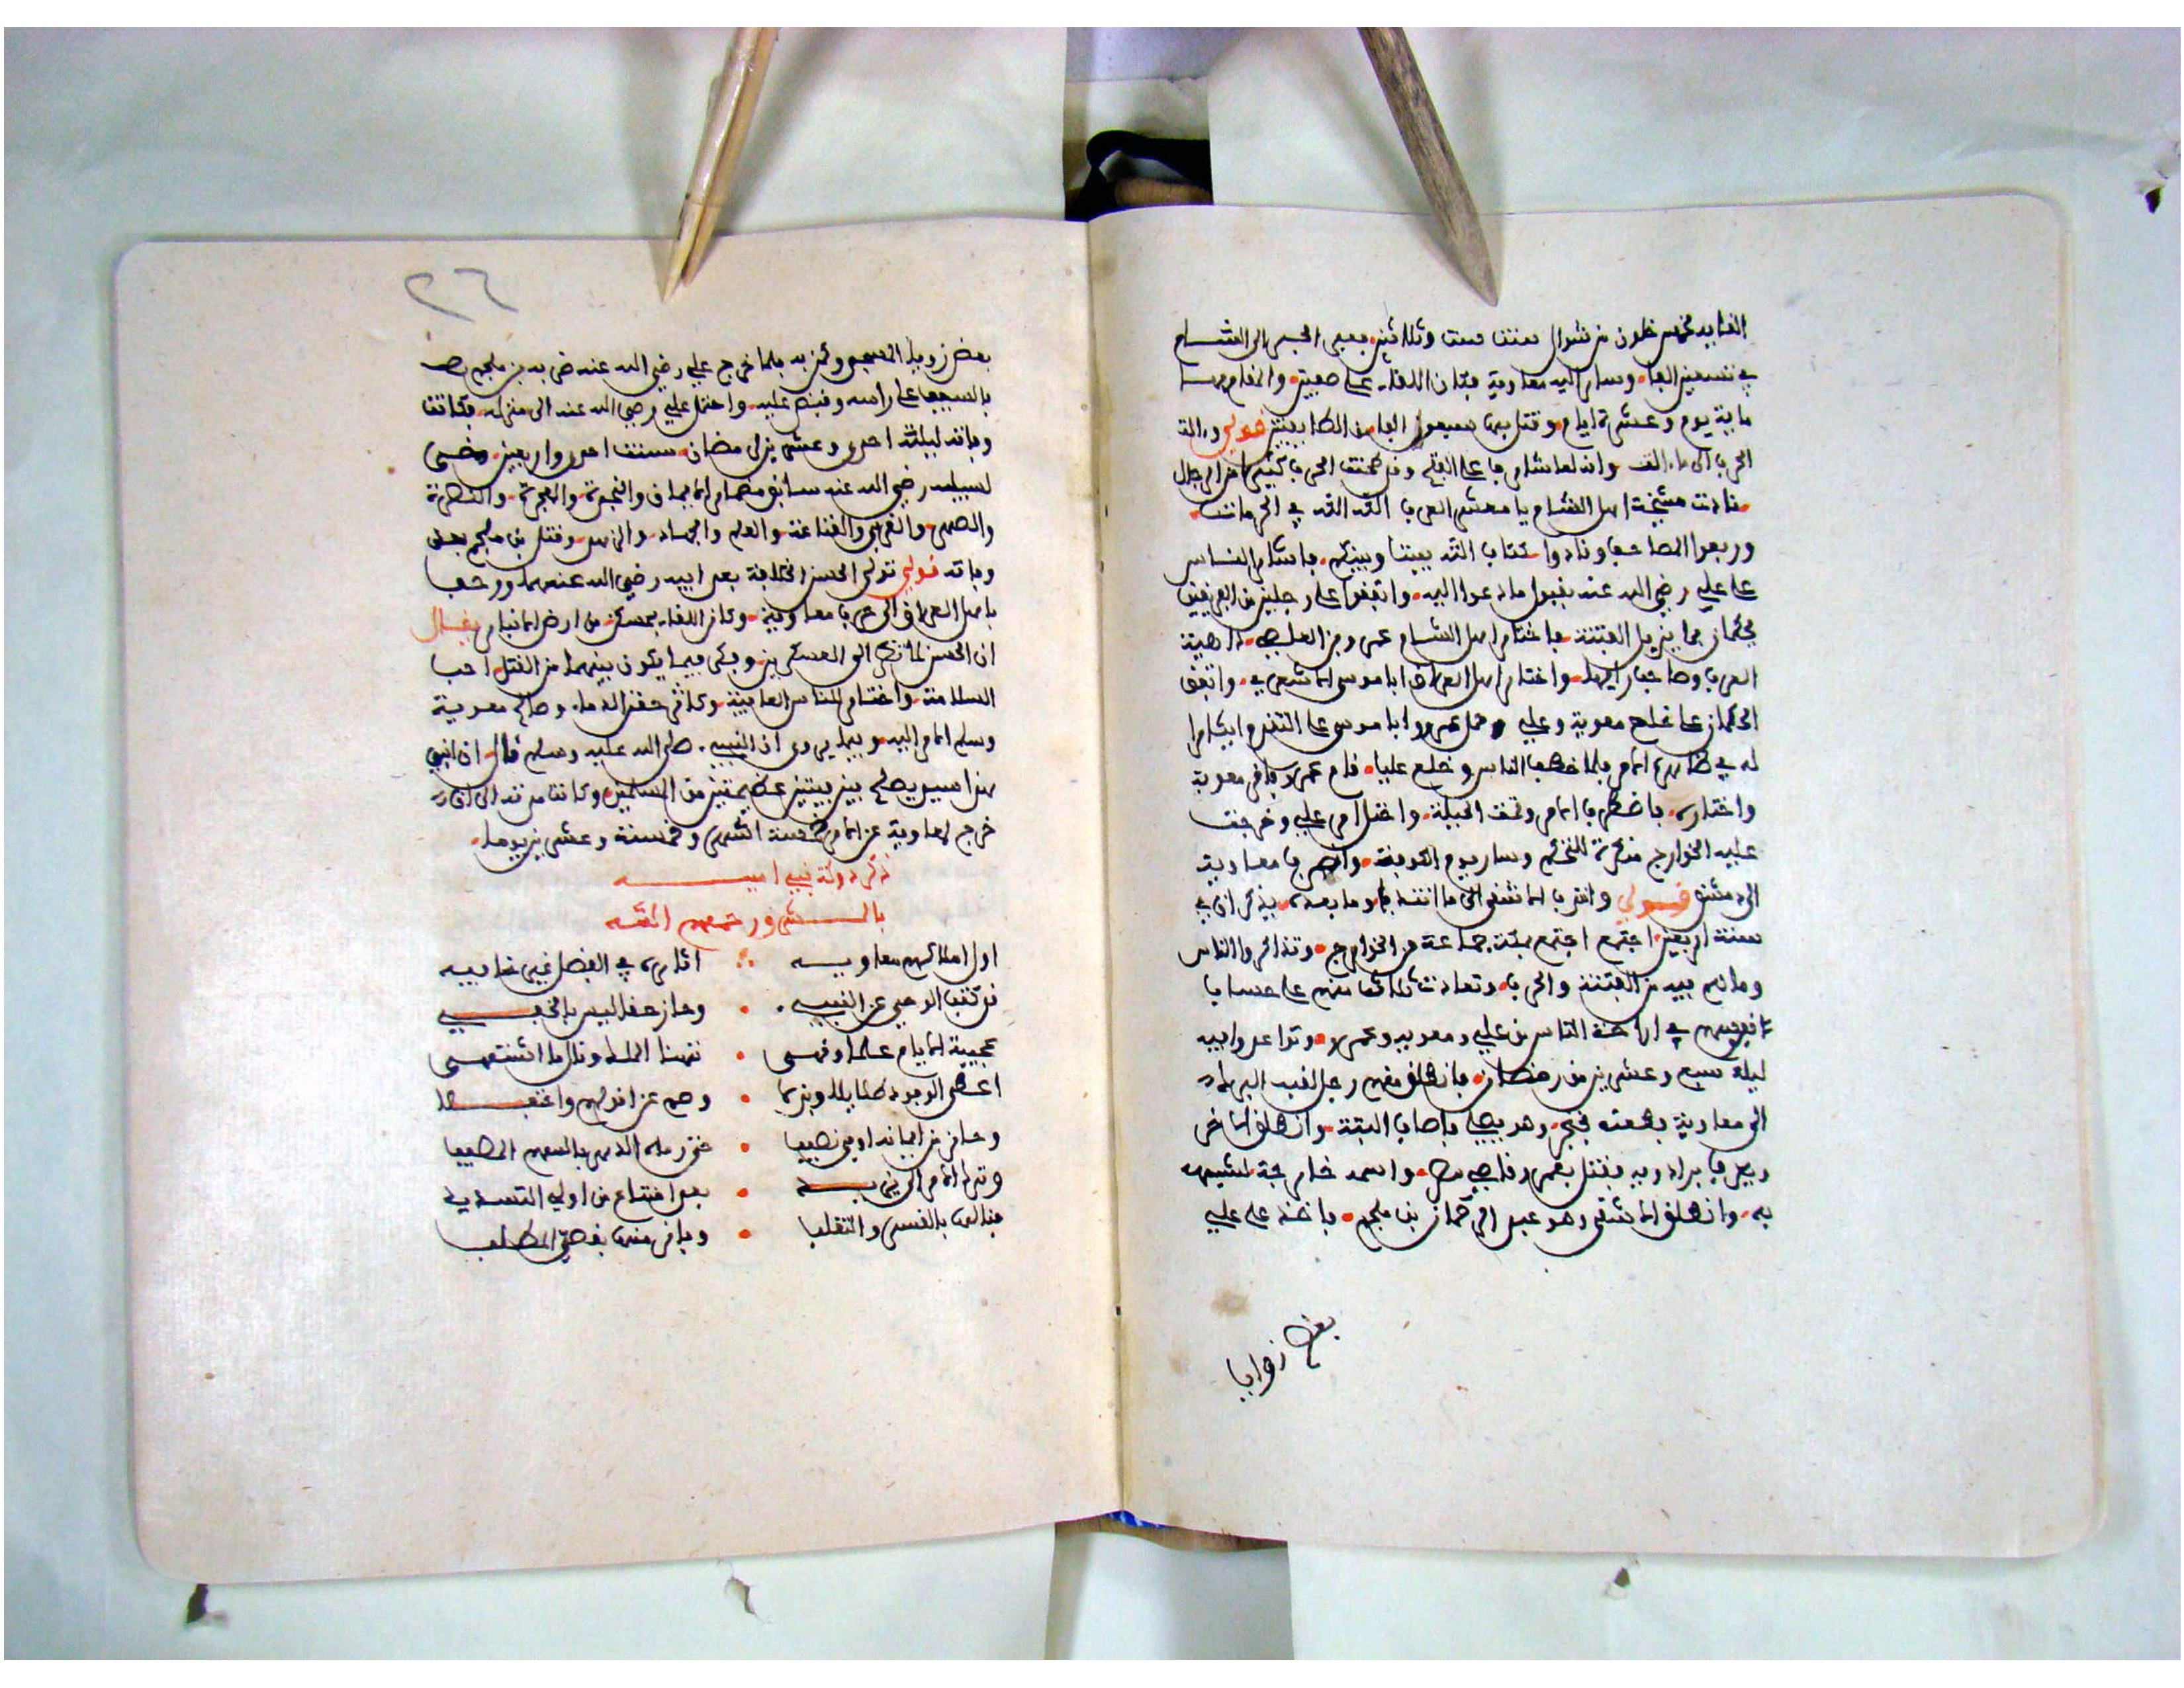 الغايد لخمس خلون من شوال سنة ست وثلاثين فعبر الجسر الى الشام
في تسعين الفا وسار اليه معاوية فكان اللقاء على صفين والمقام بها
ماية يوم وعشرة ايام وقتل بها سبعون الفا من الطايفتين قولي
الحرب الى
فنادت مشيخة اهل الشام يا معشر العرب الله الله في الحرمات
ورفعوا المصاحف ونادوا كتاب الله بيننا وبينكم فاشار الناس
على علي رضي الله عنه بقبول ما دعوا اليه واتفقوا على رجلين من الفريقين
يحكمان بما يزيل الفتنة فاختار اهل الشام عمرو بن العاصي داهية
العرب وصاحب رايها واختار اهل العراق ابا موسى الاشعري واتفق
الحكمان على خلع معوية وعلي وحمل عمرو ابا موسى على التقدم ايثارا
له في ظاهر الامر فلما خطب الناس وخلع عليا قام عمرو فاقر معوية
واختاره فاضطرب الامر وتمت الحيلة واختل امر علي وخرجت
عليه الخوارج منكرة للتحكيم وسار يوم الكوفة وانصرف معاوية
الى دمشق قولي واقترب الاشقى الى ما انتدب وما بعده يذكر ان في
سنة اربعين اجتمع اجتمع بمكة جماعة من الخوارج وتذاكروا الناس
وما هم فيه من الفتنة والحرب وتعاهدت ثلاثة منهم على
في اراحة الناس من علي ومعويه وعمرو وتواعدوا فيه
ليلة سبع وعشرين من رمضان فانطلق منهم رجل لقبه البرك
الى معاوية فطعنه بخنجر وهو يصلي فاصاب اليته وانطلق الاخر
ويعرف بزادويه فقتل بعمرو قاضي مصر واسمه خارجة لشبهه
به وانطلق الاشقى وهو عبد الرحمان بن ملجم فاخذ على علي
بعض زوايا
٢٦
بعض زوايا المسجد وكمن به فلما خرج علي رضي الله عنه ضربه بن ملجم
بالسيف على راسه وقبض عليه واحتمل علي رضي الله عنه الى منزله فكانت
وفاته ليلة احدى وعشرين لرمضان سنة احدى واربعين ومضى
لسبيله رضي الله عنه سابق مضمار الايمان والنجدة والهجرة والنصرة
والصهر والقربى والقناعة والعلم والجهاد والزهد وقتل بن ملجم بعد
وفاته قولي تولى الحسن الخلافة بعد ابيه رضي الله عنهما وزحف
باهل العراق الى حرب معاوية وكان اللقاء بمسكن من ارض الانبار يقال
ان الحسن لما نظر الى العسكرين وفكر فيما يكون بينهما من القتل احب
السلامة واختار للناس العافية وكره حقن الدماء وصالح معوية
وسلم الامر اليه وفيما يروى ان النبي صلى الله عليه وسلم قال ان ابني
هذا سيد يصلح بين فيتين عظيمتين من المسلمين وكانت مدته الى ان
خرج لمعاوية عن الامر خمسة اشهر وخمسة وعشرين يوما
ذكر دولة بني اميه
بالشرق ورحمهم الله
اول املاكهم معاويه ∴ اثاره في الفضل غير خافيه
قد كتب الوحي عن النبي • وحاز حقا ليس بالخفي
عجيبة الايام علما ودهى • تهنا الملك ونال ما اشتهى
اعطى الوجود طايلا وبذلا •
وحاز من ايمانه اوفى نصيبا •
وترك الامر الى يزيد • بعد امتناع من اولي التسديد
فنالها بالقسر والتغلب • وفاز منها بقصي المطلب